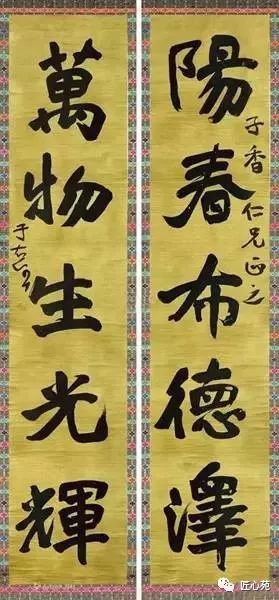 陽春布德澤
子香仁兄正之
萬物生光輝
于右任
匠心苑